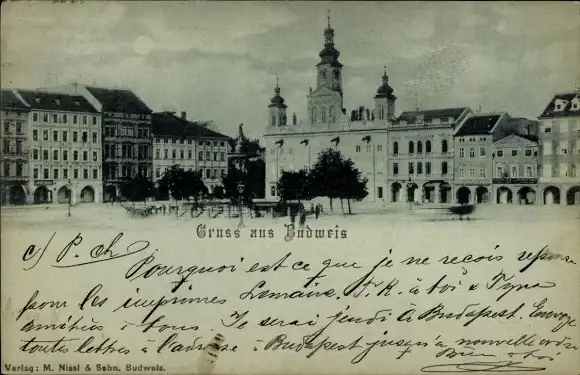 Gruss aus Budweis
c/ P. ch
Pourquoi est ce que je ne reçois reponse
pour les imprimes Lemaire, T. K. à toi &
amitiés à tous. Je serai jeudi à Budapest. Envoye
toutes lettres à l'adresse à Budapest jusqu'a nouvelle ordre
Bien à toi
Verlag: M. Nissl & Sohn, Budweis.